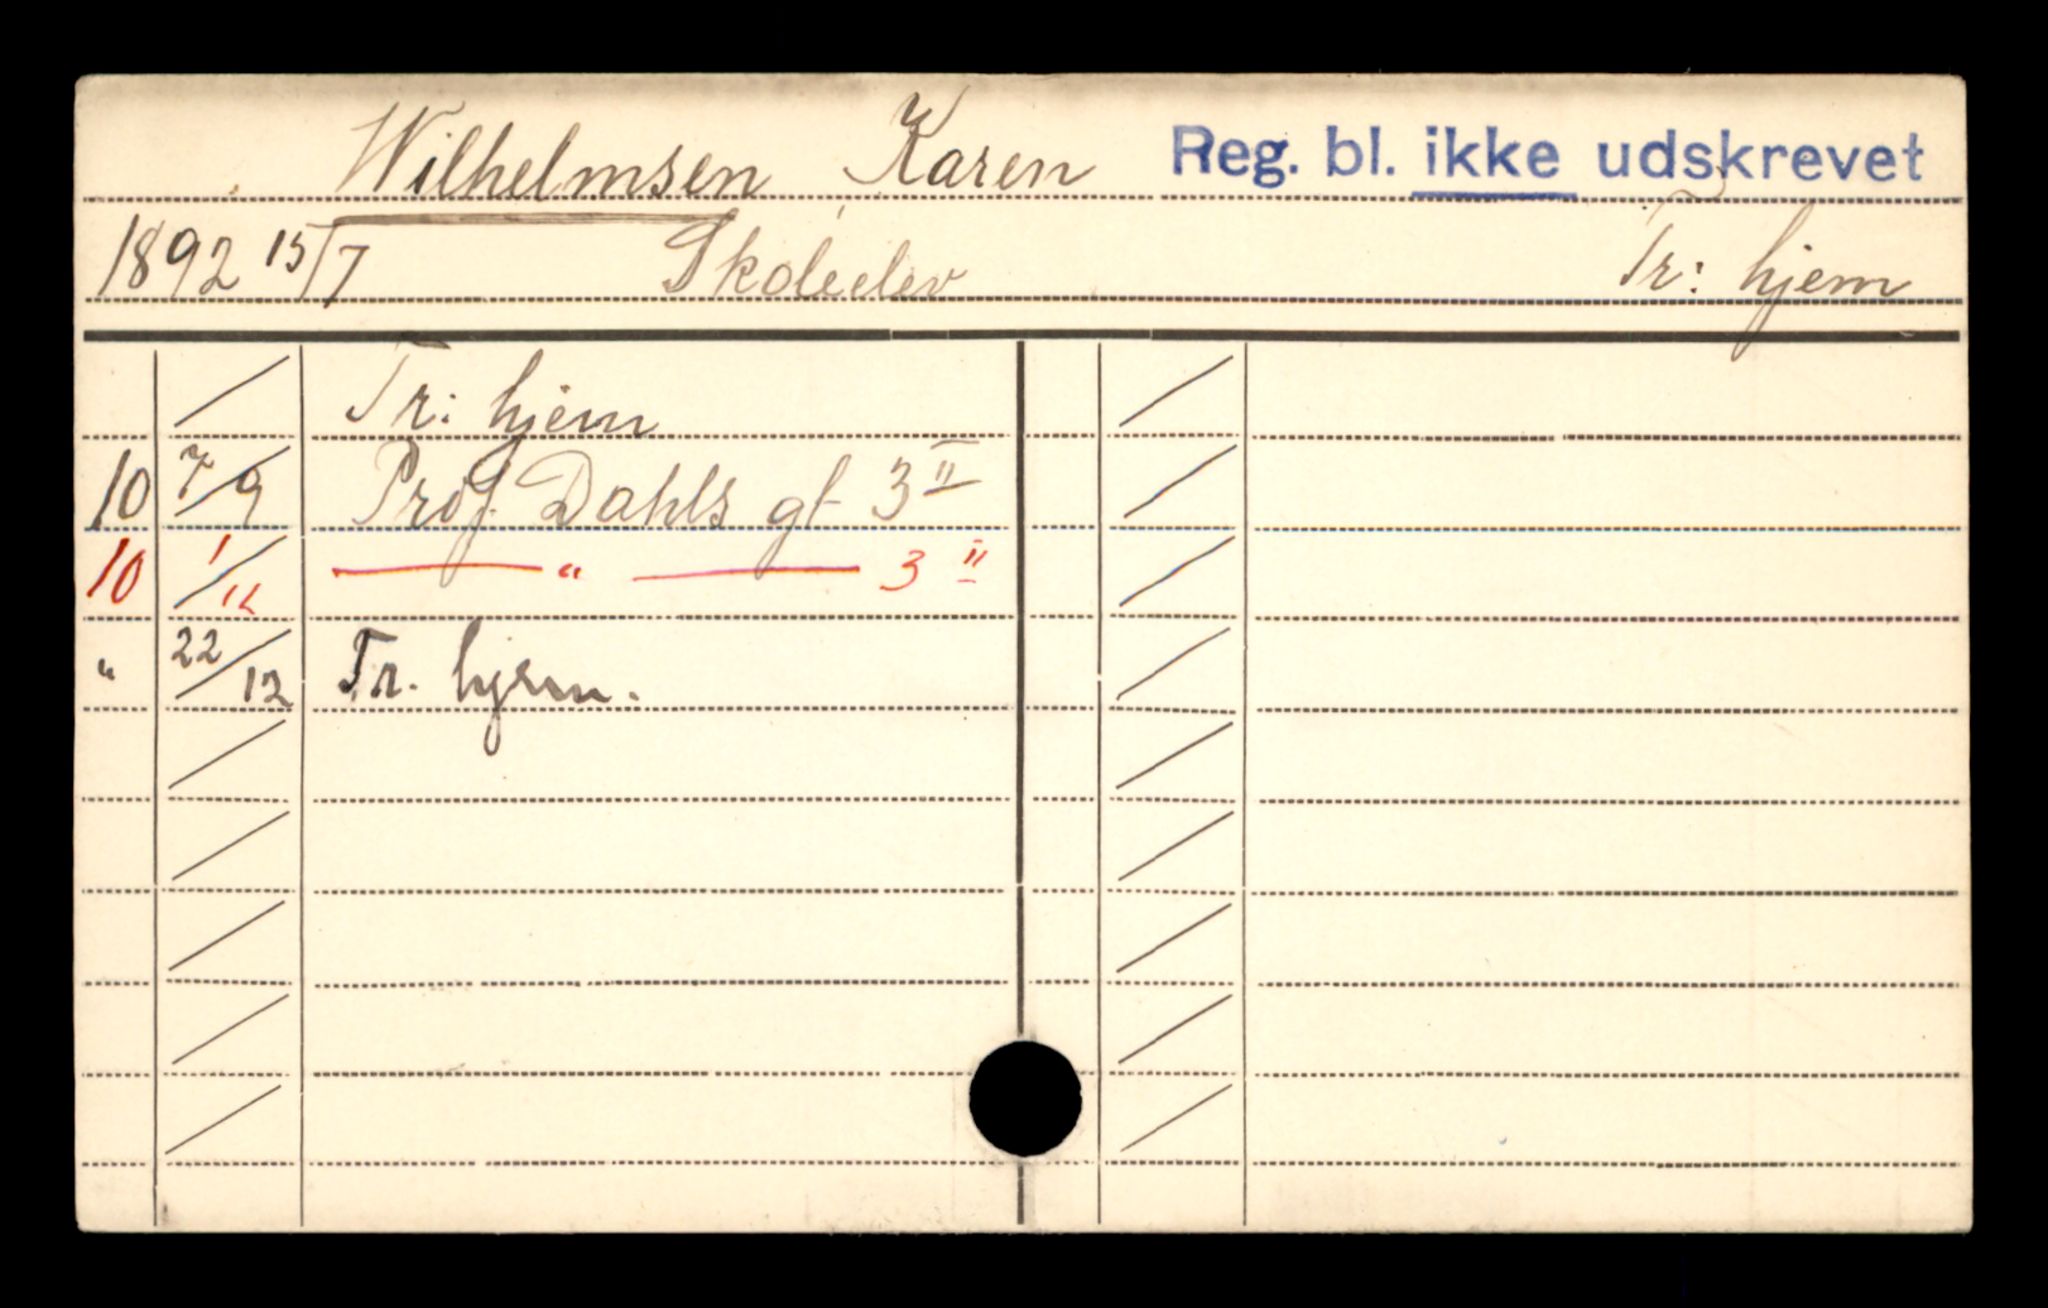 Wilhelmsen Karen Reg. bl. ikke udskrevet
1892 15/7 Skoleelev Tr: hjem
Tr: hjem
10 7/9 Prof. Dahls gt 3 II
10 1/12 — " — 3 II
" 22/12 Tr. hjem.